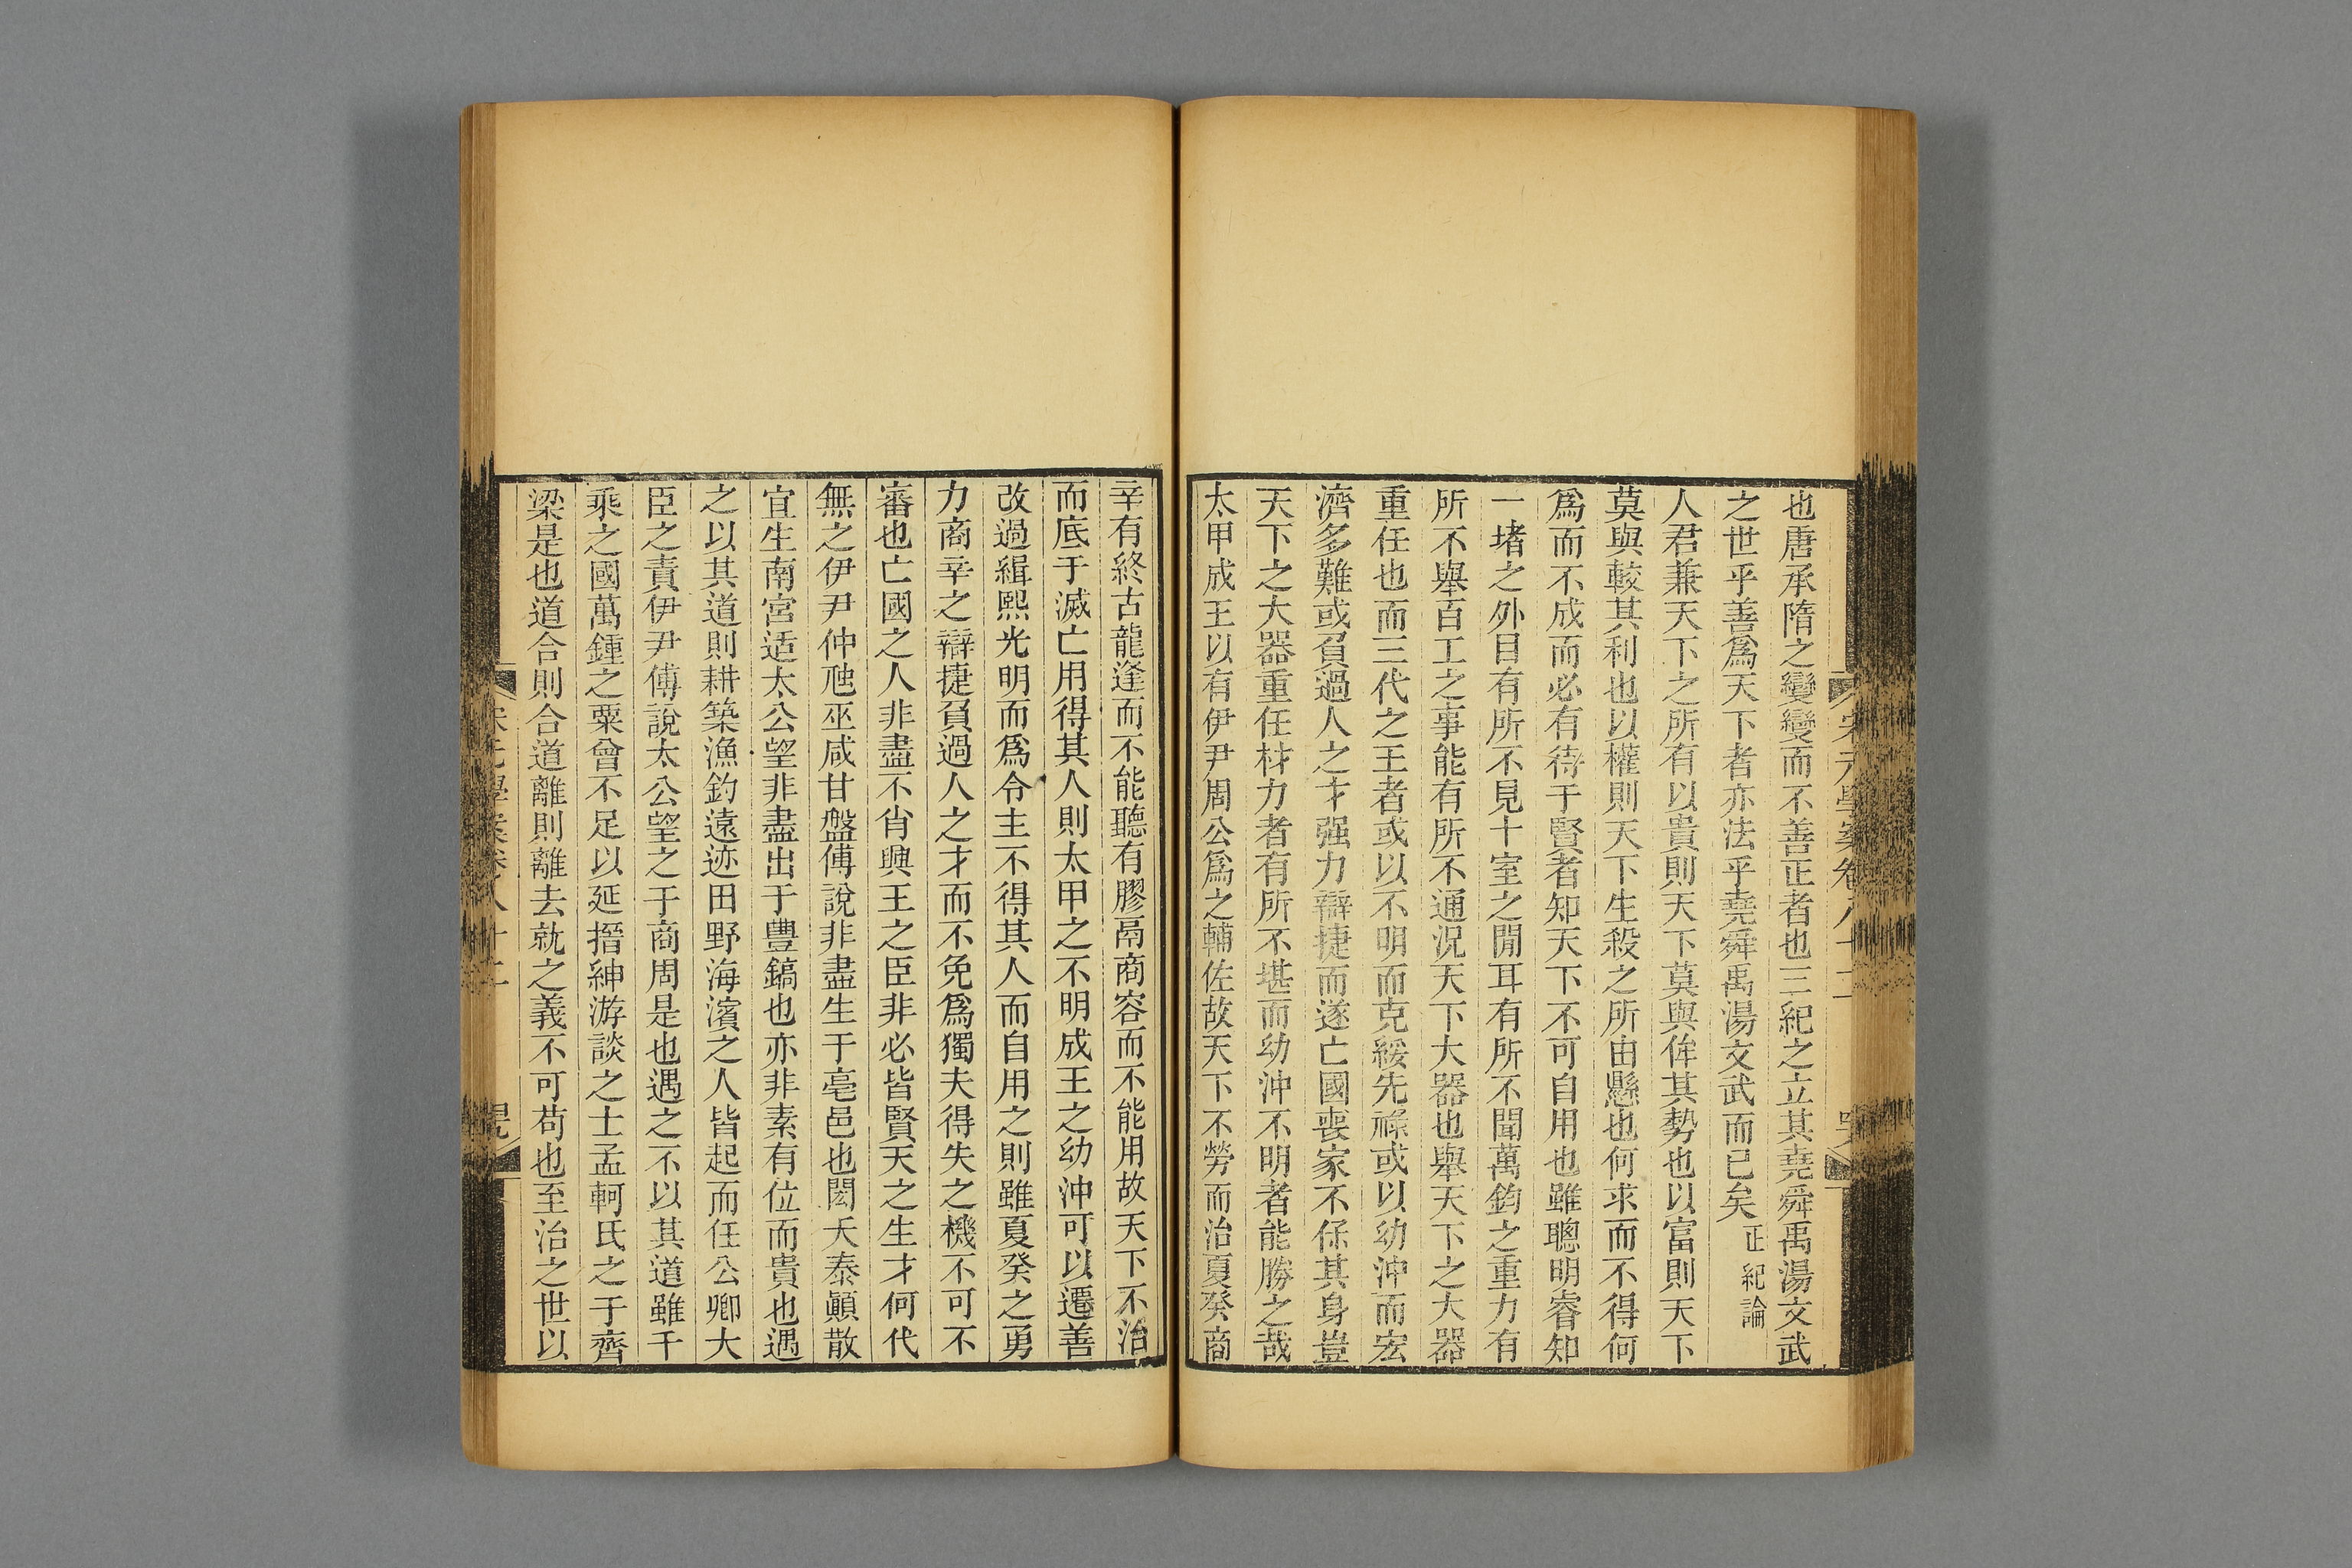 也唐承隋之變變而不善正者也三紀之立其堯舜禹湯文武
之世乎善爲天下者亦法乎堯舜禹湯文武而已矣正紀論
人君兼天下之所有以貴則天下莫與侔其勢也以富則天下
莫與較其利也以權則天下生殺之所由懸也何求而不得何
爲而不成而必有待于賢者知天下不可自用也雖聰明睿知
一堵之外目有所不見十室之閒耳有所不聞萬鈞之重力有
所不舉百工之事能有所不通況天下大器也舉天下之大器
重任也而三代之王者或以不明而克綏先祿或以幼沖而宏
濟多難或負過人之才强力辯捷而遂亡國喪家不保其身豈
天下之大器重任材力者有所不堪而幼沖不明者能勝之哉
太甲成王以有伊尹周公爲之輔佐故天下不勞而治夏癸商
辛有終古龍逢而不能聽有膠鬲商容而不能用故天下不治
而底于滅亡用得其人則太甲之不明成王之幼沖可以遷善
改過緝熙光明而爲令主不得其人而自用之則雖夏癸之勇
力商辛之辯捷負過人之才而不免爲獨夫得失之機不可不
審也亡國之人非盡不肖興王之臣非必皆賢天之生才何代
無之伊尹仲虺巫咸甘盤傅說非盡生于亳邑也閎夭泰顚散
宜生南宮适太公望非盡出于豐鎬也亦非素有位而貴也遇
之以其道則耕築漁釣遠迹田野海濱之人皆起而任公卿大
臣之責伊尹傅說太公望之于商周是也遇之不以其道雖千
乘之國萬鍾之粟曾不足以延搢紳游談之士孟軻氏之于齊
梁是也道合則合道離則離去就之義不可苟也至治之世以
宋元學案卷八十二